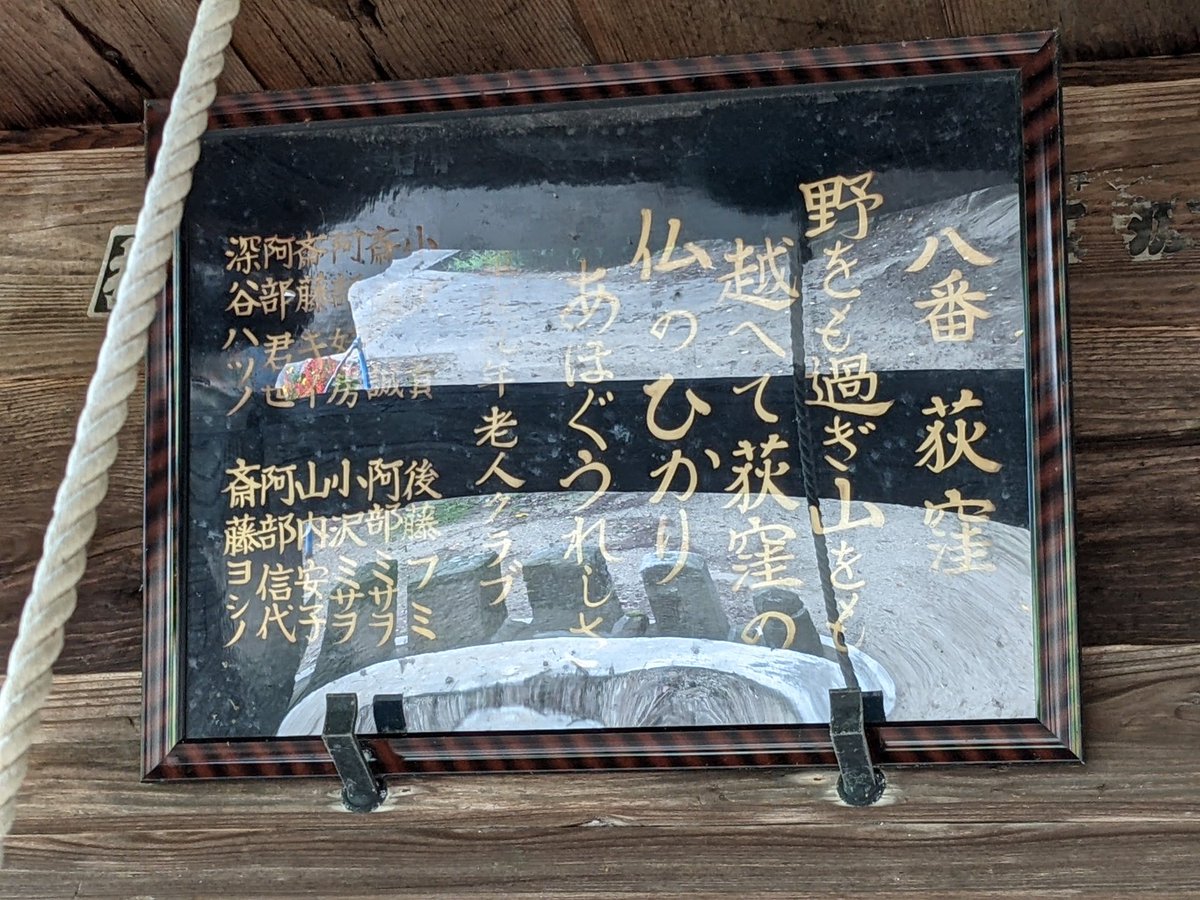 八番 荻窪
野をも過ぎ山をも
越へて荻窪の
仏のひかり
あほぐうれしさ
年老人クラブ
後藤フミ
阿部ミサヲ
小沢ミサヲ
山内安子
阿部信代
斎藤ヨシノ
小貢
斎誠
阿房
斎藤キ
阿部君也
深谷ハツノ